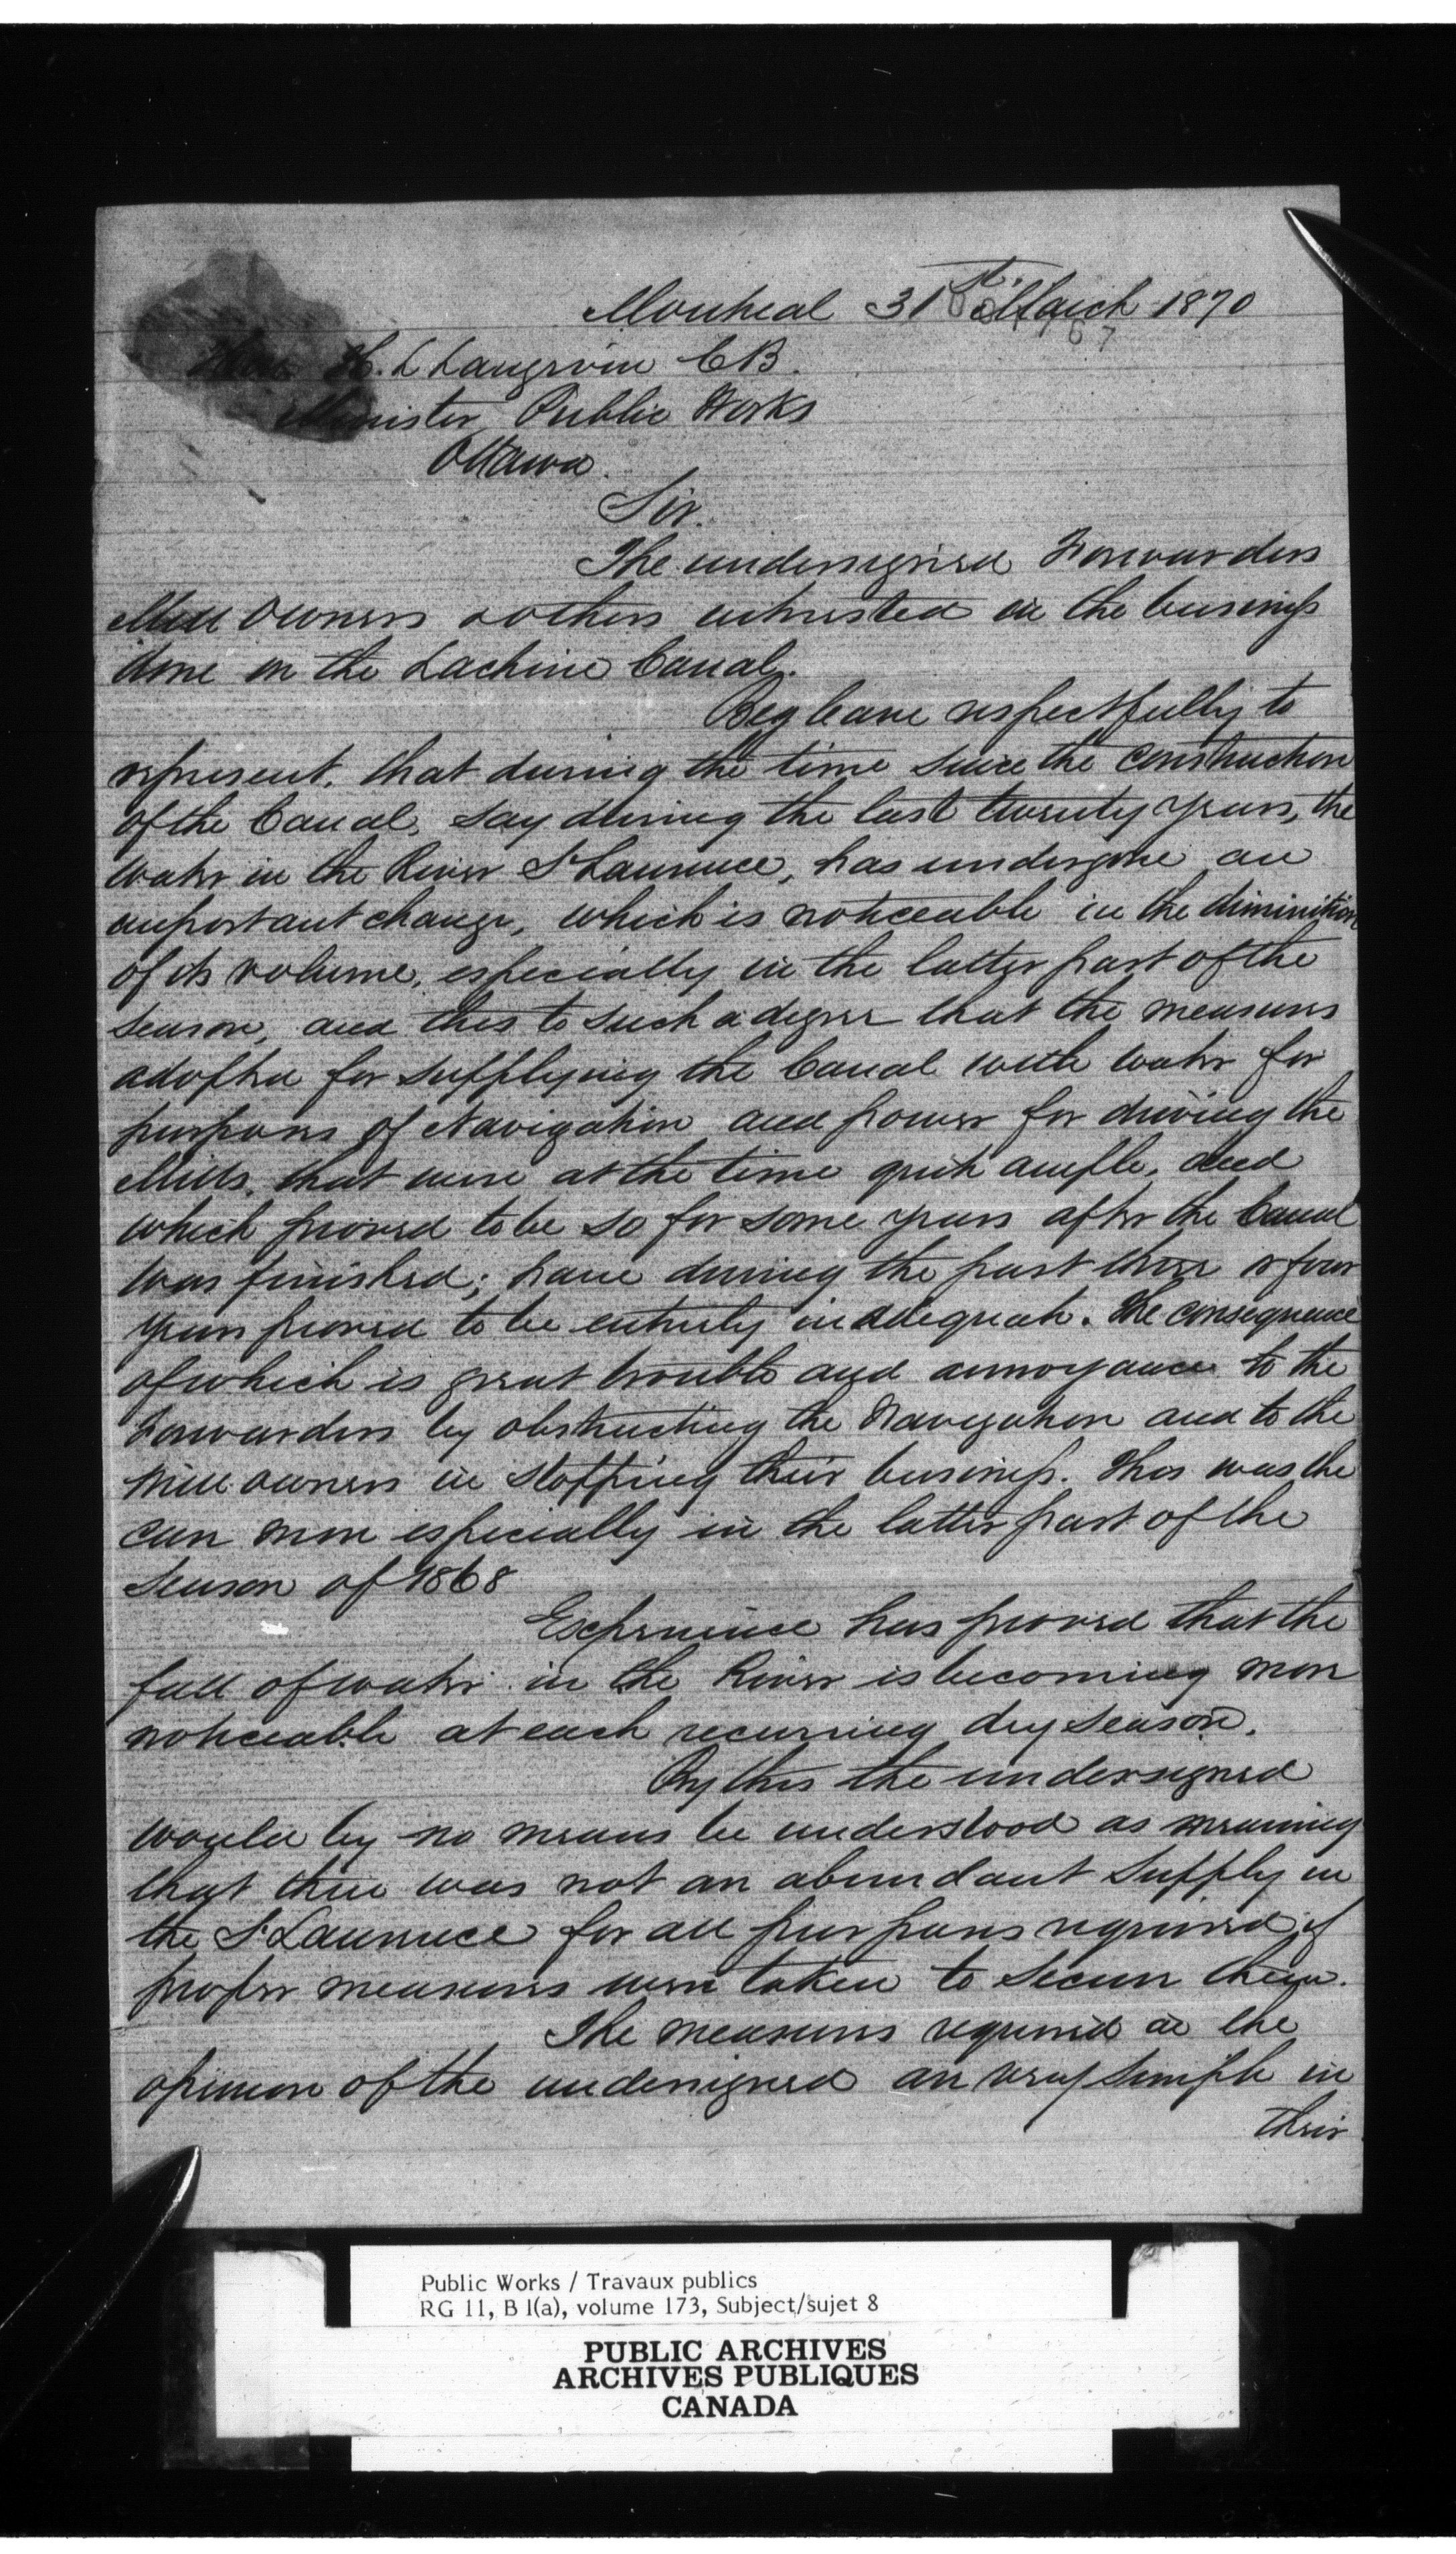 Montreal 31st March 1870
Hon H. L Langevin CB.
Minister Public Works
Ottawa.
Sir.
The undersigned Forwarders
Mill Owners & others interested in the business
done on the Lachine Canal.
Beg leave respectfully to
represent, that during the time since the construction
of the Canal, say during the last twenty years, the
water in the River St Lawrence, has undergone an
important change, which is noticeable in the diminition
of its volume, especially in the latter part of the
season, and this to such a degree that the measures
adopted for supplying the Canal with water for
purposes of Navigation and power for driving the
Mills, that were at the time quite ample, and
which proved to be so for some years after the Canal
was finished; have during the past three or four
years proved to be entirely inadequate. The consequence
of which is great trouble and annoyance to the
Forwarders by obstructing the Navigation and to the
Mill owners in stopping their business. This was the
case more especially in the latter part of the
Season of 1868
Experience has proved that the
fall of water in the River is becoming more
noticeable at each recurring dry season.
By this the undersigned
would by no means be understood as meaning
that there was not an abundant supply in
the St Lawrence for all purposes required if
proper measures were taken to secure them.
The measures required in the
opinion of the undersigned are very simple in
their
Public Works / Travaux publics
RG 11, B 1(a), volume 173, Subject/sujet 8
PUBLIC ARCHIVES
ARCHIVES PUBLIQUES
CANADA